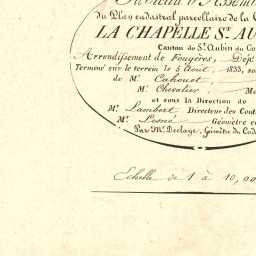 du Plan cadastral parcellaire de la
LA CHAPELLE St. AU
Canton de St. Aubin du Co
Arrondissement de Fougères, Dép
Terminé sur le terrein le 5 Août 1833, so
de Mr. Cahouet
Mr. Chevalier Ma
et sous la Direction de
Mr. Lambert Directeur des Cont
Mr. Lesné Géomètre e
Par Mr. Géomètre du Cad
Echelle de 1 à 10,00